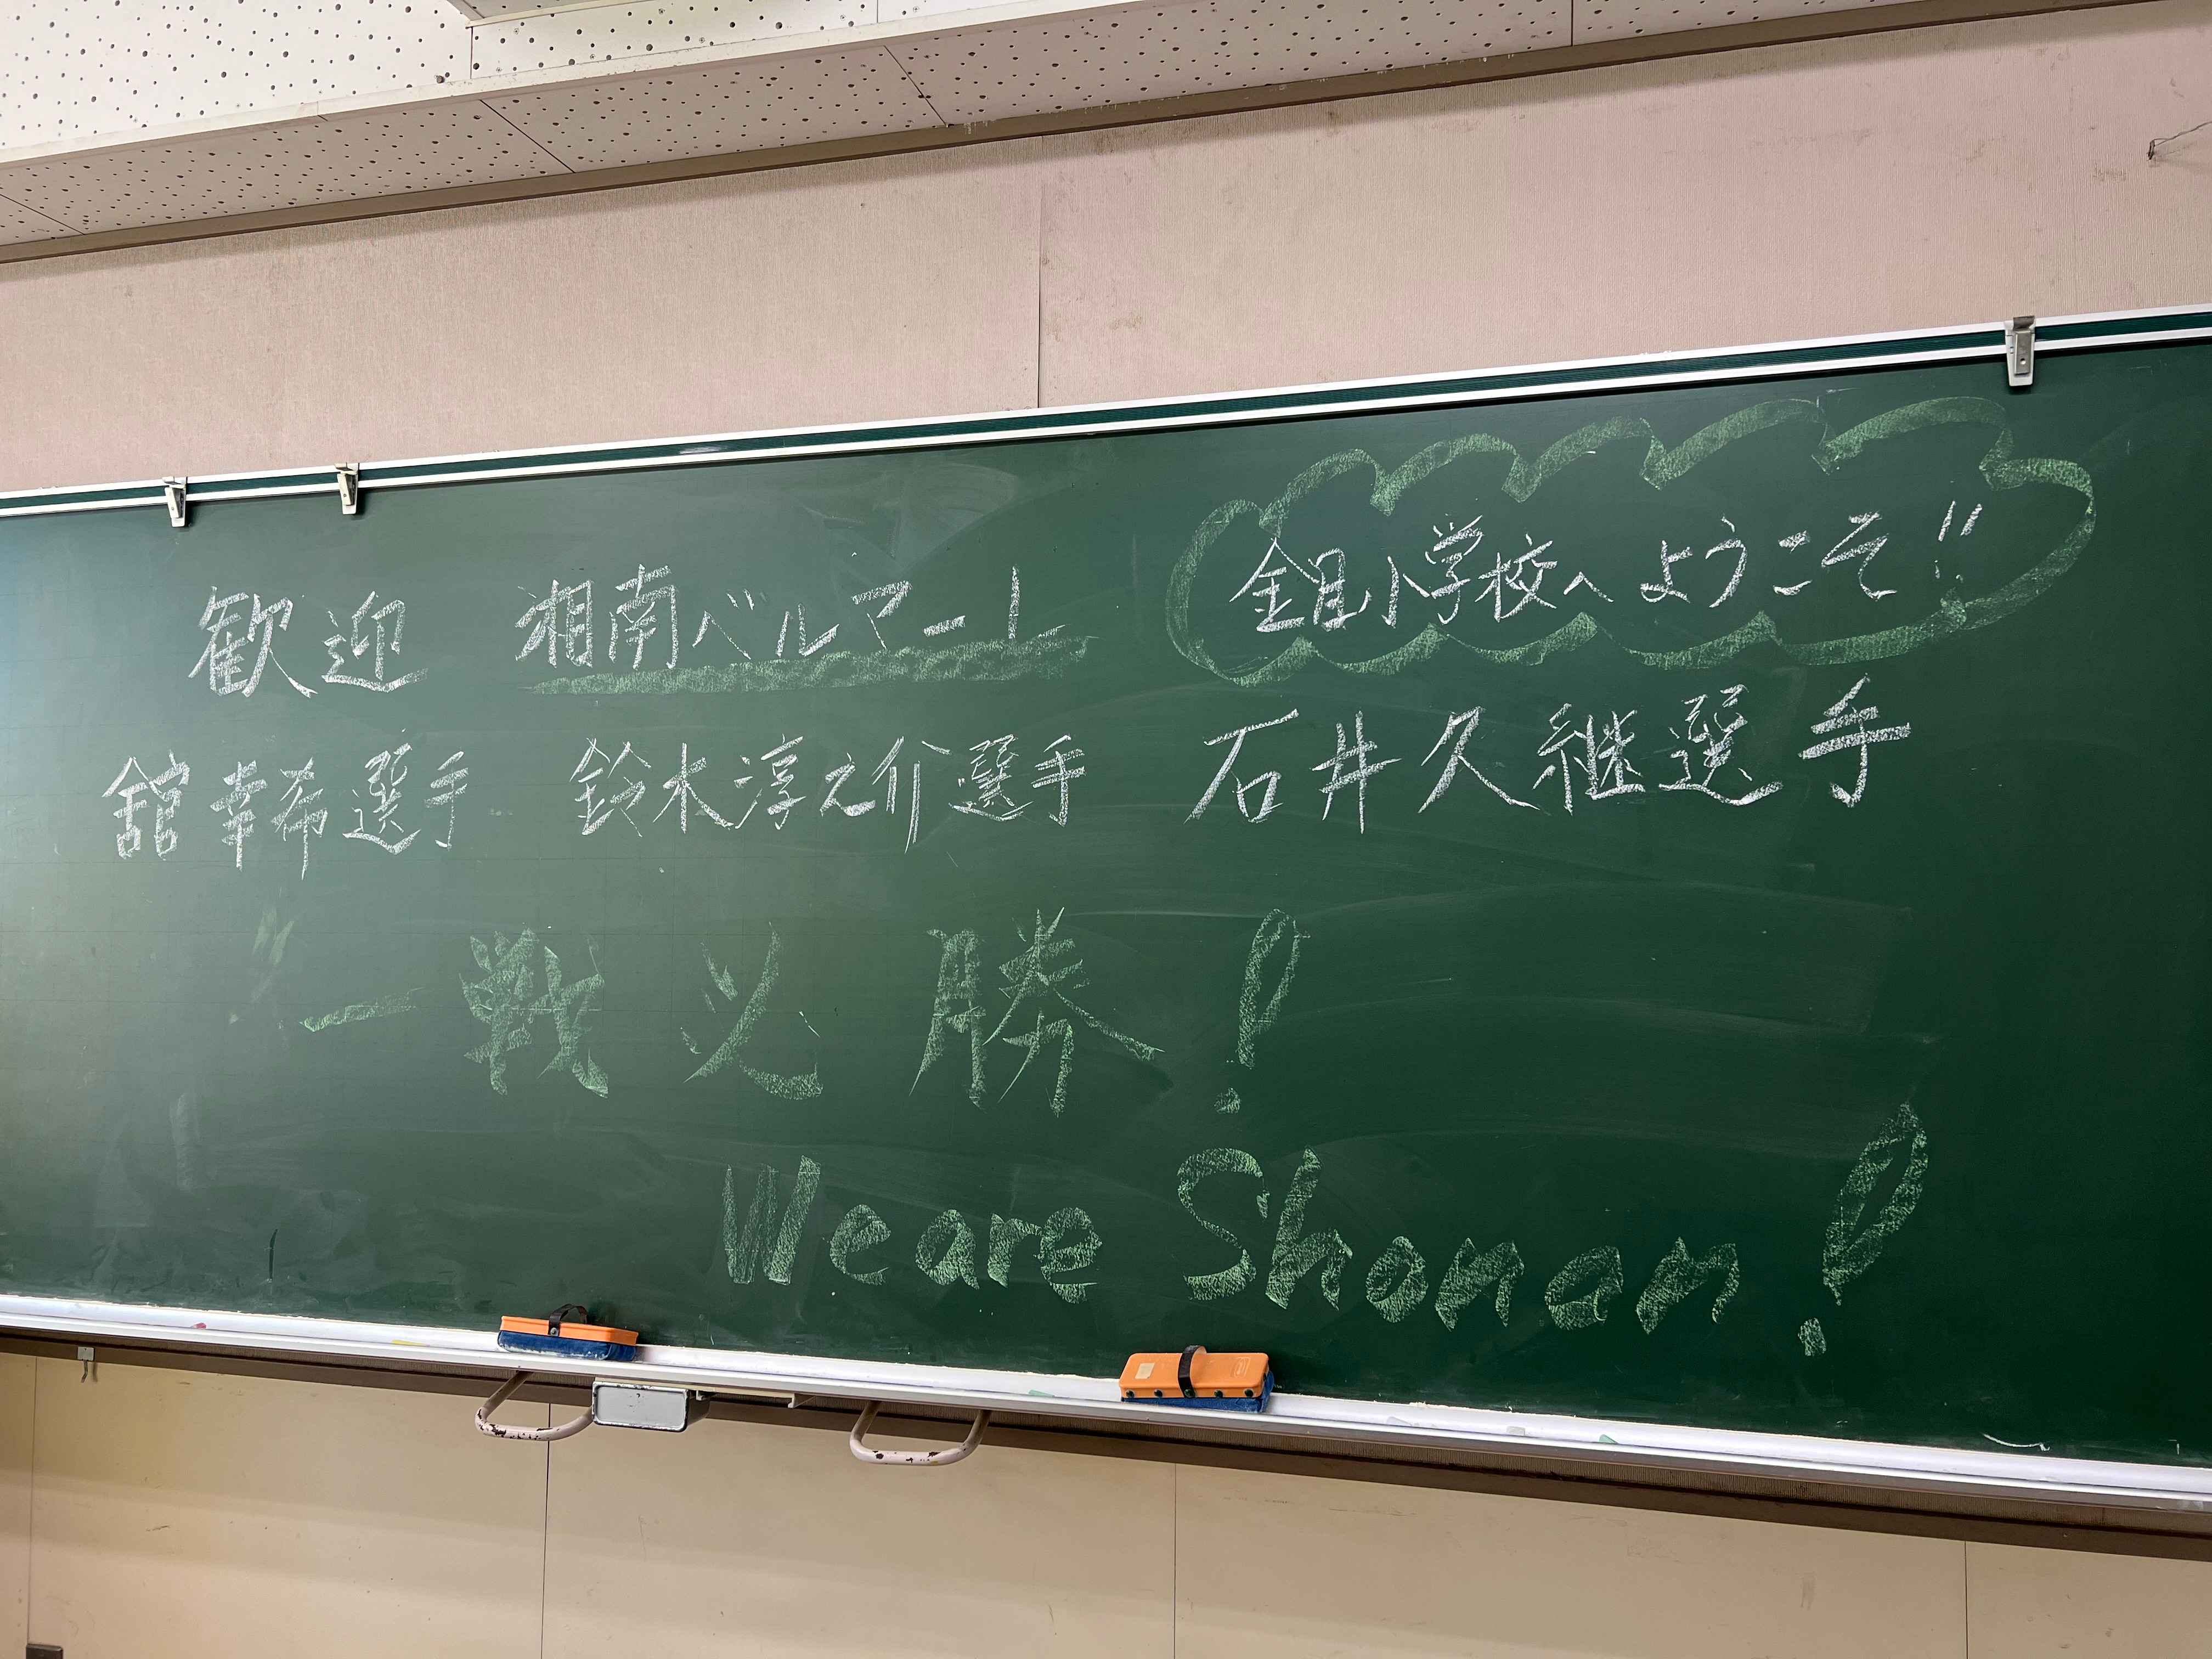 歓迎 湘南ベルマーレ
金目小学校へようこそ!!
舘幸希選手 鈴木淳之介選手 石井久継選手
一戦必勝!
We are Shonan!